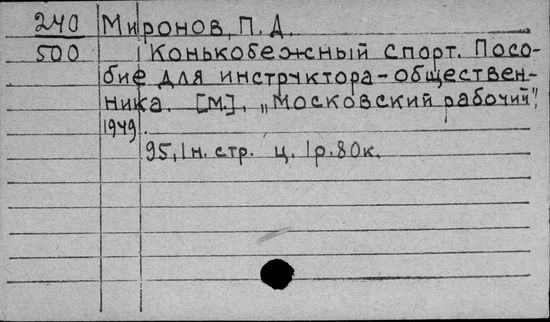 240 Миронов, П. Д.
500 Конькобежный спорт. Посо-
бие для инструктора-обществен-
ника. [М.], „Московский рабочий",
1949.
95, 1 н. стр. ц. 1 р. 80 к.